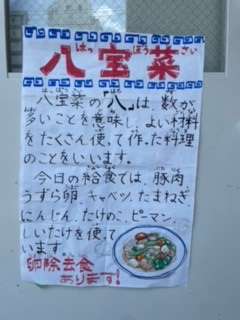 はっぽうさい
八宝菜
八宝菜の「八」は、数が
多いことを意味し、よい材料
をたくさん使って作った料理
のことをいいます。
今日の給食では、豚肉
うずら卵、キャベツ、たまねぎ
にんじん、たけのこ、ピーマン、
しいたけを使って
います。
卵除去食
あります!